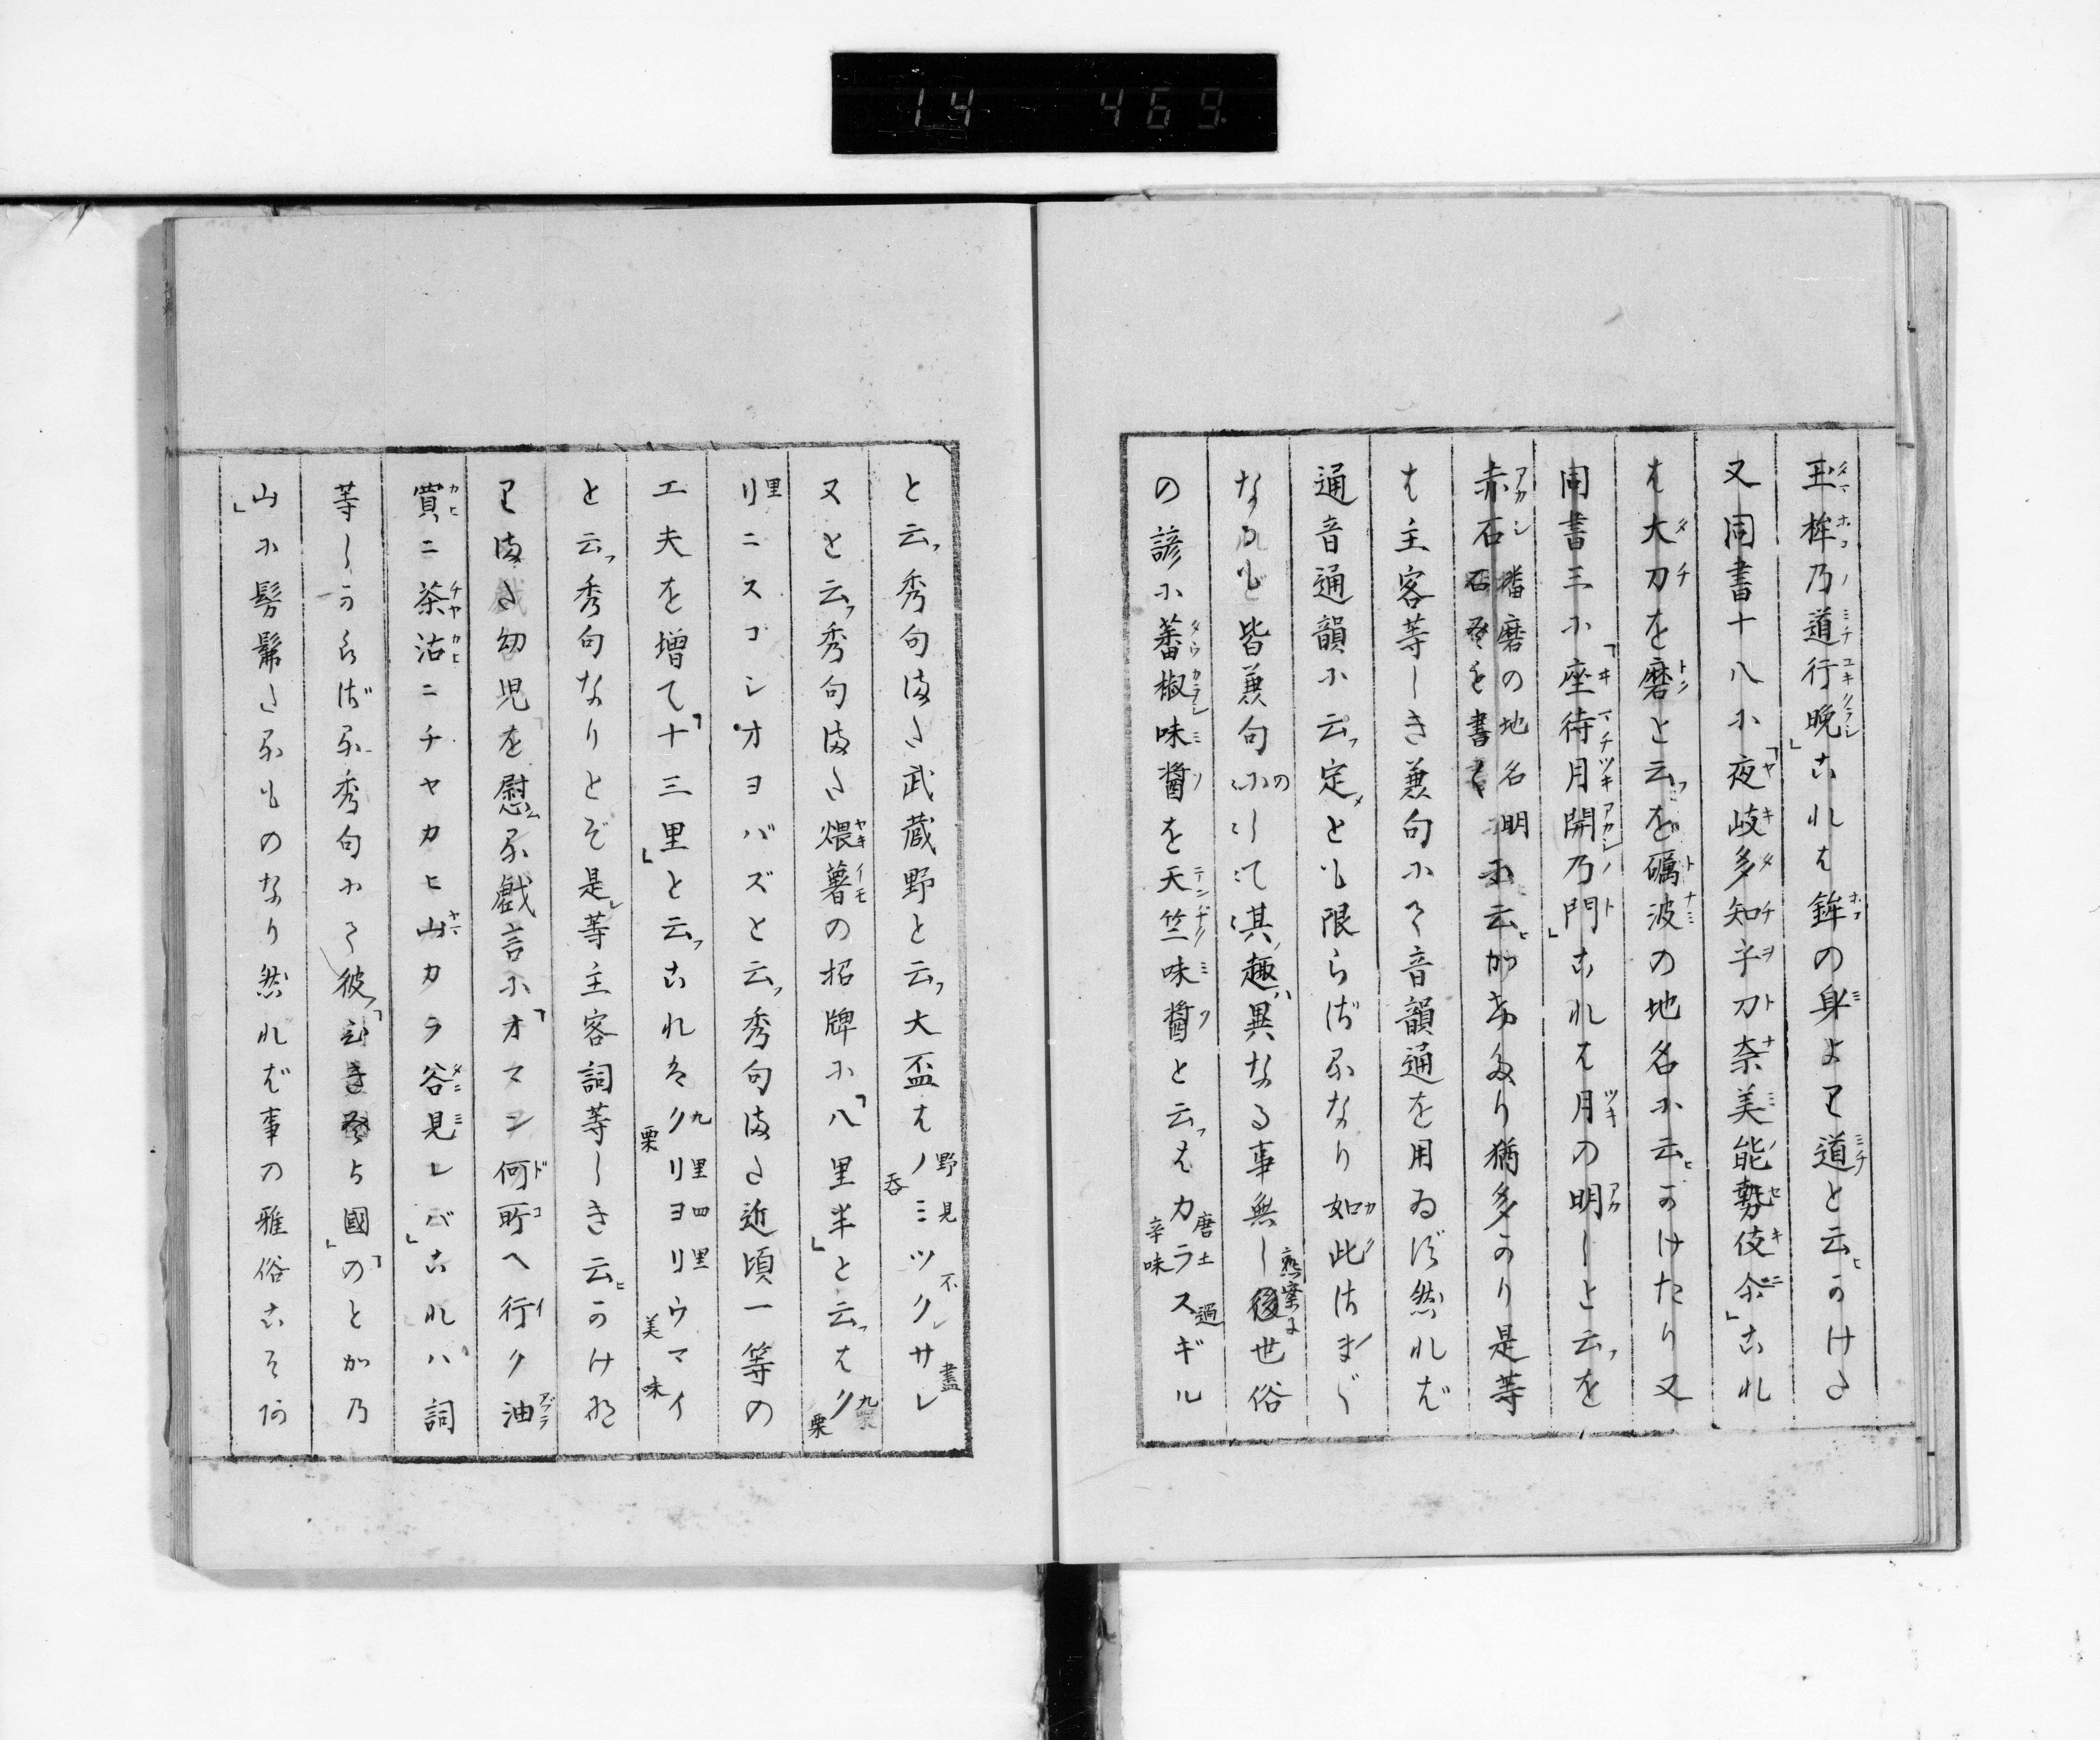 14 469
玉桙乃道行晩」これは鉾の身より道と云ヒかけた
又同書十八に「夜岐多知乎刀奈美能勢伎尒」これ
は大刀を磨と云フを礪波の地名に云ヒかけたり又
同書三に「座待月開乃門」これは月の明しと云フを
赤石 播磨の地名明 石 に云ヒかけたり猶多かり是等
は主客等しき兼句にて音韻通を用ゐず然れど
通音通韻に云フ定メとも限らざるなり如此さまざ
なるも皆兼句のにして其趣ハ異なる事無し後世俗
の諺に蕃椒味醬を天竺味醬と云フはカラスギル
唐土 過 辛味
と云フ秀句また武蔵野と云フ大盃はノミツクサレ
野見 不 盡 呑
又と云フ秀句また煨薯の招牌に「八里半」と云フはク
九 栗
リニスコシオヨバズと云フ秀句また近頃一等の
里
工夫を増て「十三里」と云フこれはクリヨリウマイ
九里四里 栗 美味
と云フ秀句なりとぞ是レ等主客詞等しき云ヒかけ
また幼児を慰ムる戯言に「オマン何所ヘ行ク油
買ニ茶沽ニチヤカヒ山カラ谷見レバ」これハ詞
等しからざる秀句にて彼ノ「 與國」のとかの
山に髣髴たるものなり然れど事の雅俗こそあ